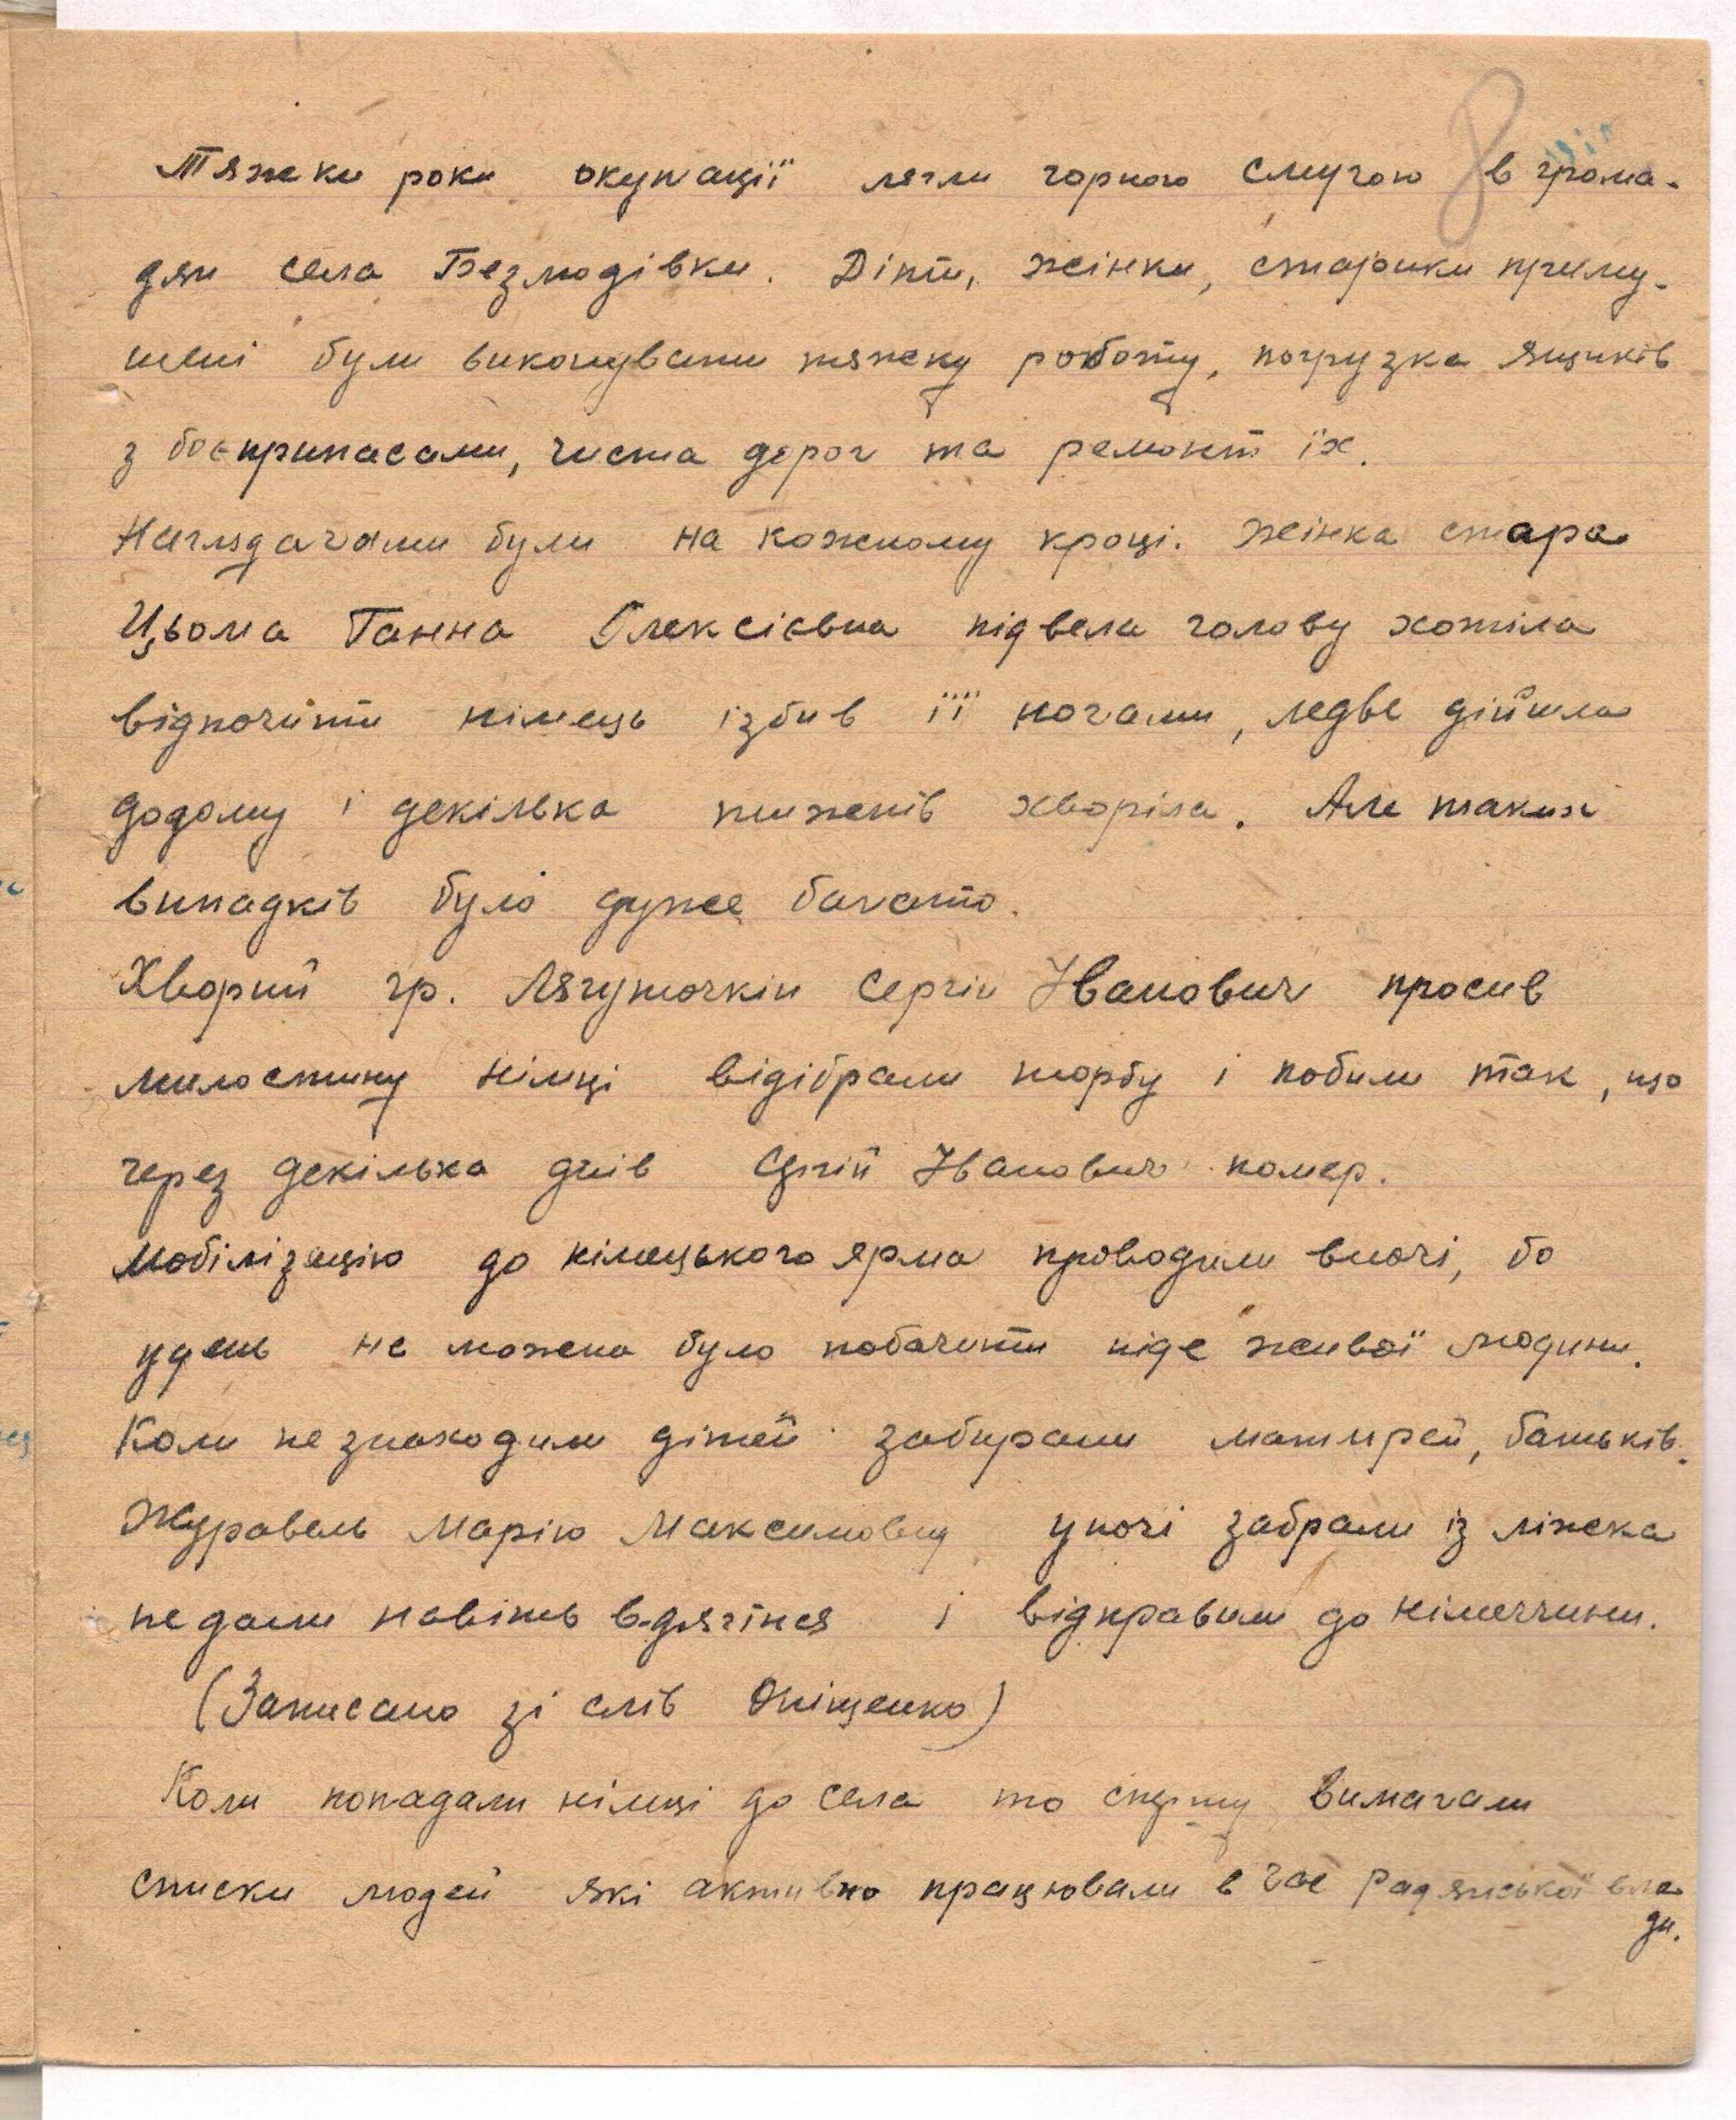 8
Тяжки роки окупації лягли чорною смугою в грома-
дян села Безлюдівки. Діти, жінки, старики приму-
шені були виконувати тяжку роботу, погрузка ящиків
з боєприпасами, чистка дорог та ремонт їх.
Наглядачами були на кожному кроці. Жінка стара
Цьома Ганна Олексієвна підвела голову хотіла
відпочити німець ізбив її ногами, ледве дійшла
додому і декілька тижнів хворіла. Але таких
випадків було дуже багато.
Хворий гр. Лягуточкін Сергій Іванович просив
милостину німці відібрали торбу і побили так, що
через декілька днів Сергій Іванович помер.
Мобілізацію до німецького ярма проводили вночі, бо
удень не можна було побачити ніде живої людини.
Коли не знаходили дітей забирали матирей, батьків.
Журавель Марію Максимовну уночі забрали із ліжка
не дали навіть вдягтися і відправили до німеччини.
(Записано зі слів Оніщенко)
Коли попадали німці до села то спершу вимагали
списки людей які активно працювали в час Радянської вла-
ди.